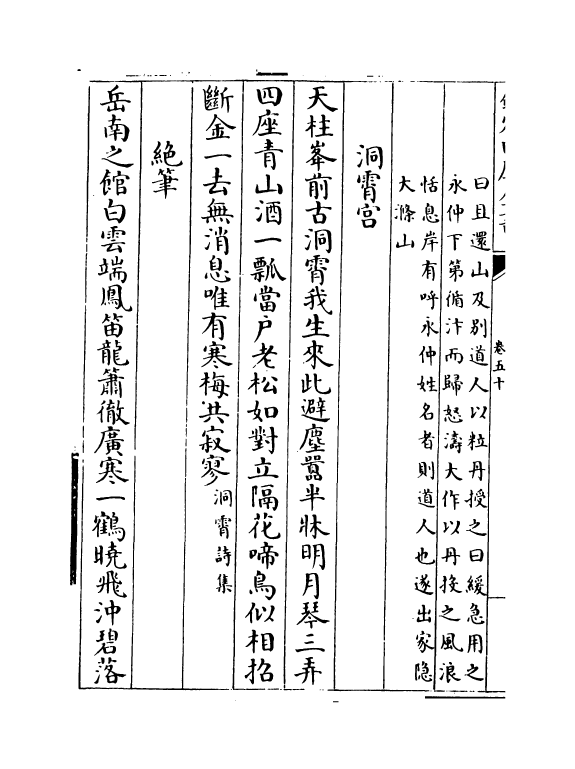 卷五十
曰且還山及别道人以粒丹授之曰緩急用之
永仲下第循汴而歸怒濤大作以丹投之風浪
恬息岸有呼永仲姓名者則道人也遂出家隐
大滌山
洞霄宫
天柱峯前古洞霄我生來此避塵囂半牀明月琴三弄
四座青山酒一瓢當户老松如對立隔花啼鳥似相招
斷金一去無消息唯有寒梅共寂寥洞霄詩集
絶筆
岳南之館白雲端鳳笛龍簫徹廣寒一鶴曉飛沖碧落